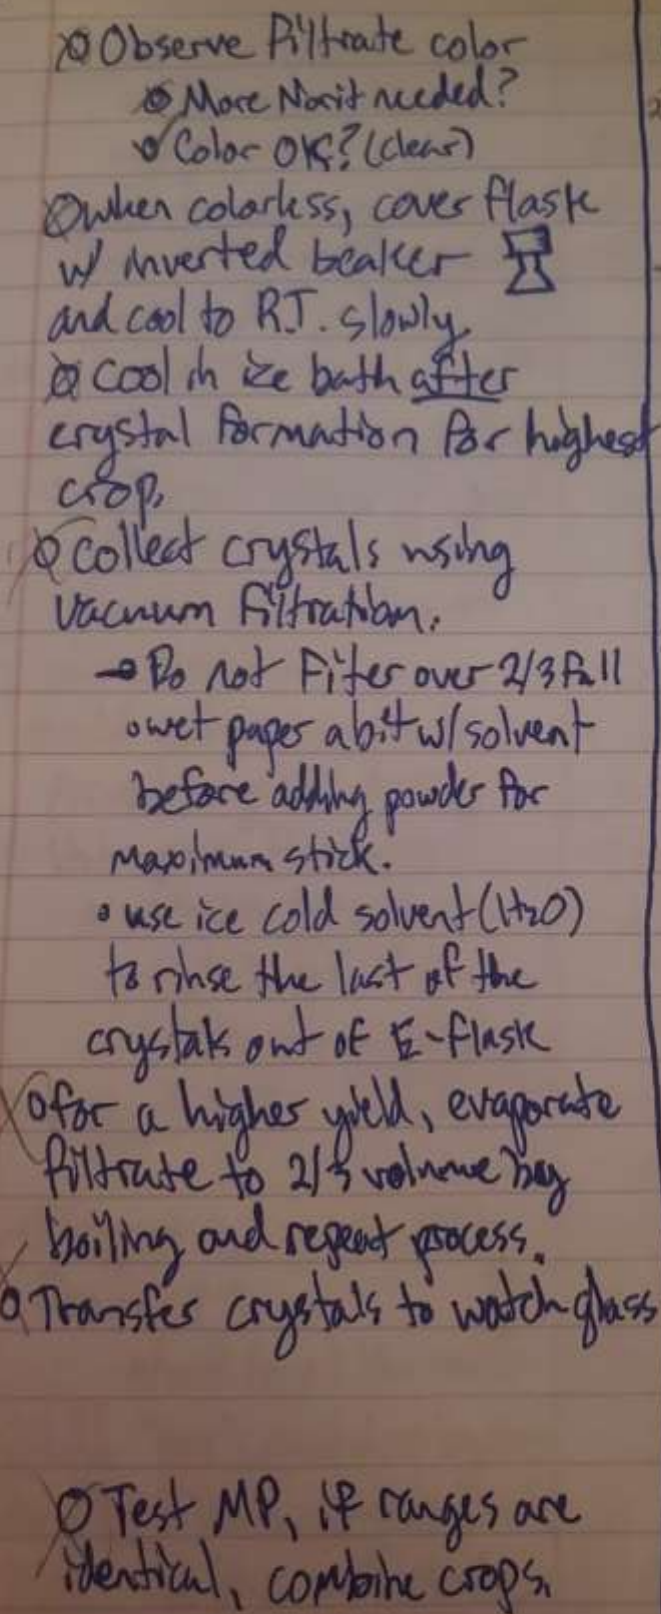 Observe filtrate color
More Norit needed?
Color OK? (clear)
when colorless, cover flask
w/ inverted beaker
and cool to R.T. slowly
Cool in ice bath after
crystal formation for highest
crop.
Collect crystals using
vacuum filtration.
→ Do not Filter over 2/3 full
wet paper a bit w/ solvent
before adding powder for
maximum stick.
• use ice cold solvent (H2O)
to rinse the last of the
crystals out of E-flask
for a higher yield, evaporate
filtrate to 2/3 volume by
boiling and repeat process.
Transfer crystals to watch glass
Test MP, if ranges are
identical, combine crops.